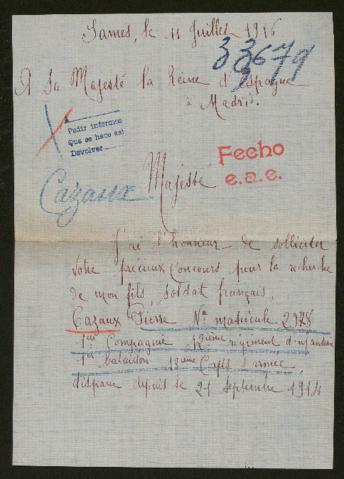 Sames, le 11 Juillet 1916
33679
A Sa Majesté la Reine d'Espagne
à Madrid.
Pedir informes
Que se hace así
Devolver
Fecho
e.a.e.
Cazaux
Majesté
J'ai l'honneur de solliciter
votre précieux concours pour la recherche
de mon fils, soldat français,
Cazaux Pierre No matricule 2978
1ère Compagnie 12ième régiment d'infanterie
1er bataillon 18ème Corps d'armée,
disparu depuis le 21 septembre 1914